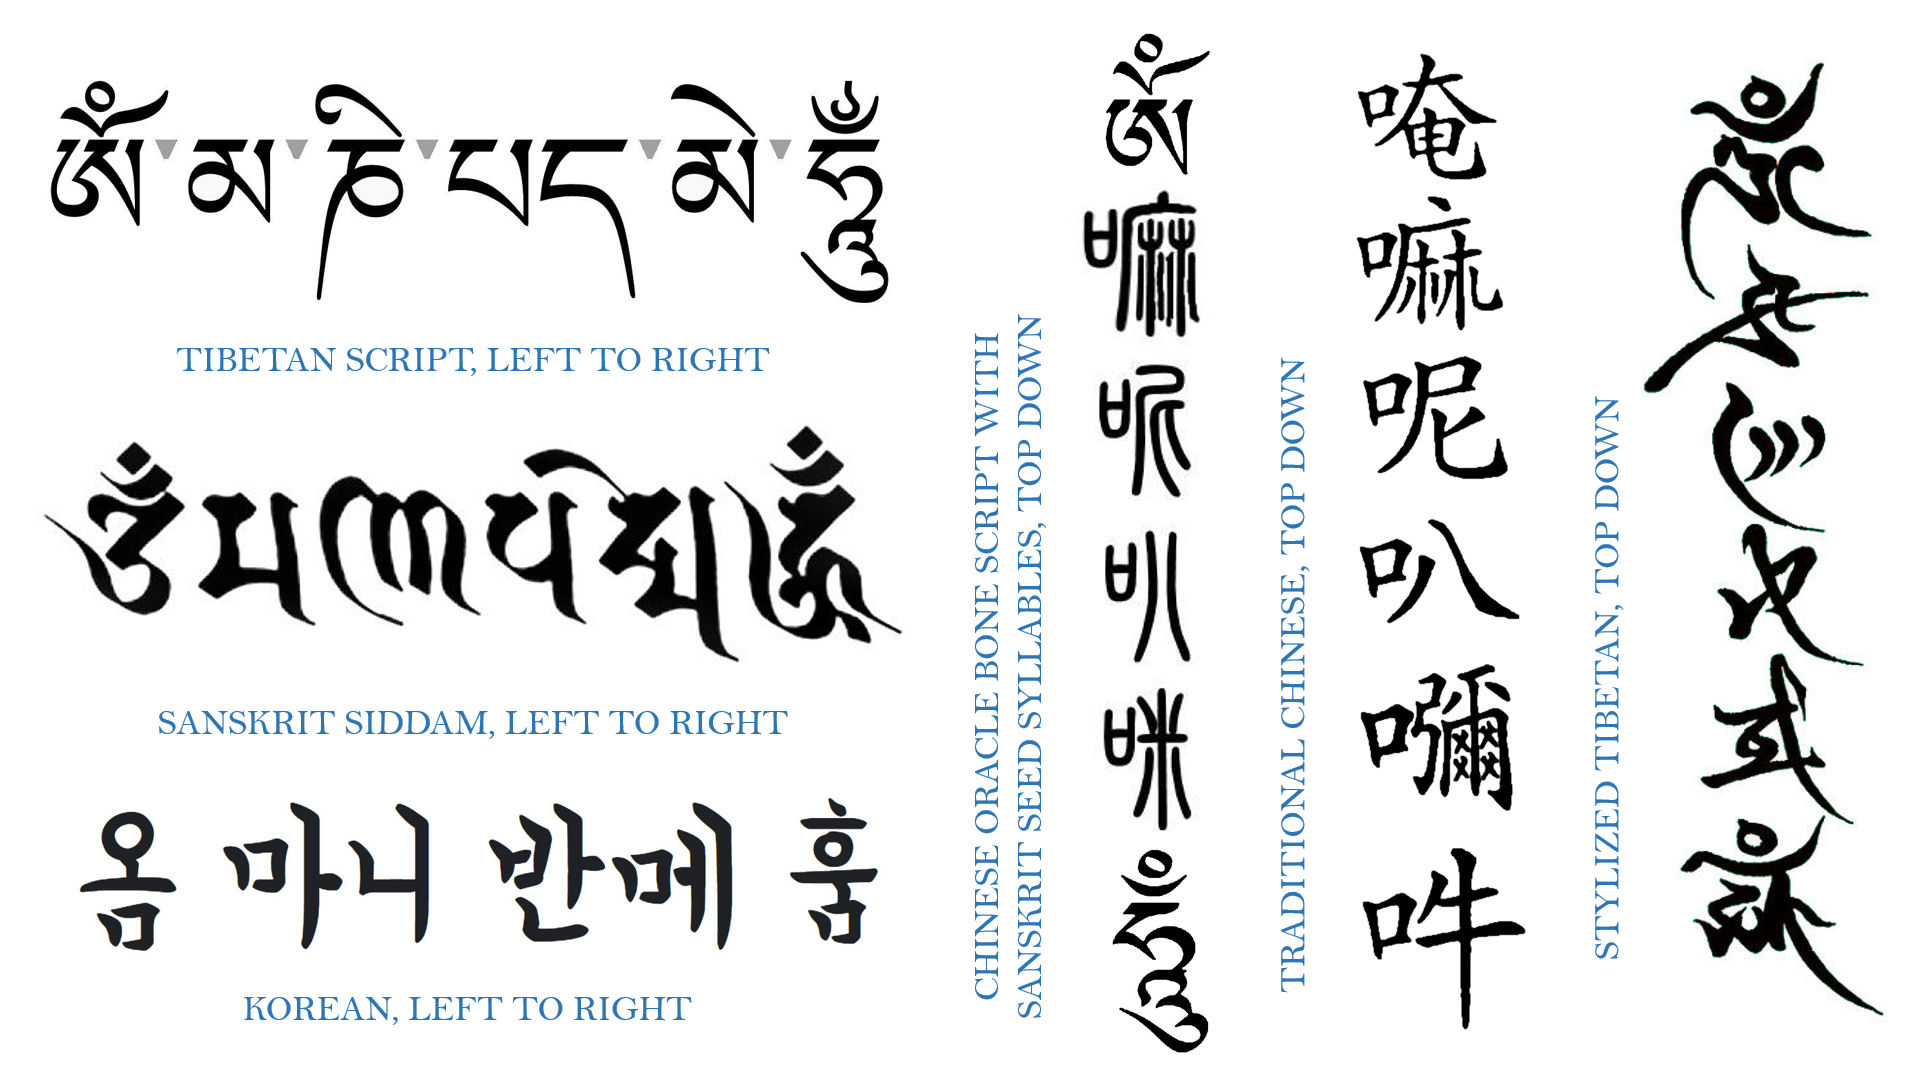 ༀ་མ་ཎི་པད་མེ་ཧཱུྃ
TIBETAN SCRIPT, LEFT TO RIGHT
SANSKRIT SIDDAM, LEFT TO RIGHT
옴 마니 반메 훔
KOREAN, LEFT TO RIGHT
CHINESE ORACLE BONE SCRIPT WITH
SANSKRIT SEED SYLLABLES, TOP DOWN
ༀ嘛呢叭咪ཧཱུྃ
TRADITIONAL CHINESE, TOP DOWN
唵嘛呢叭嚩吽
STYLIZED TIBETAN, TOP DOWN